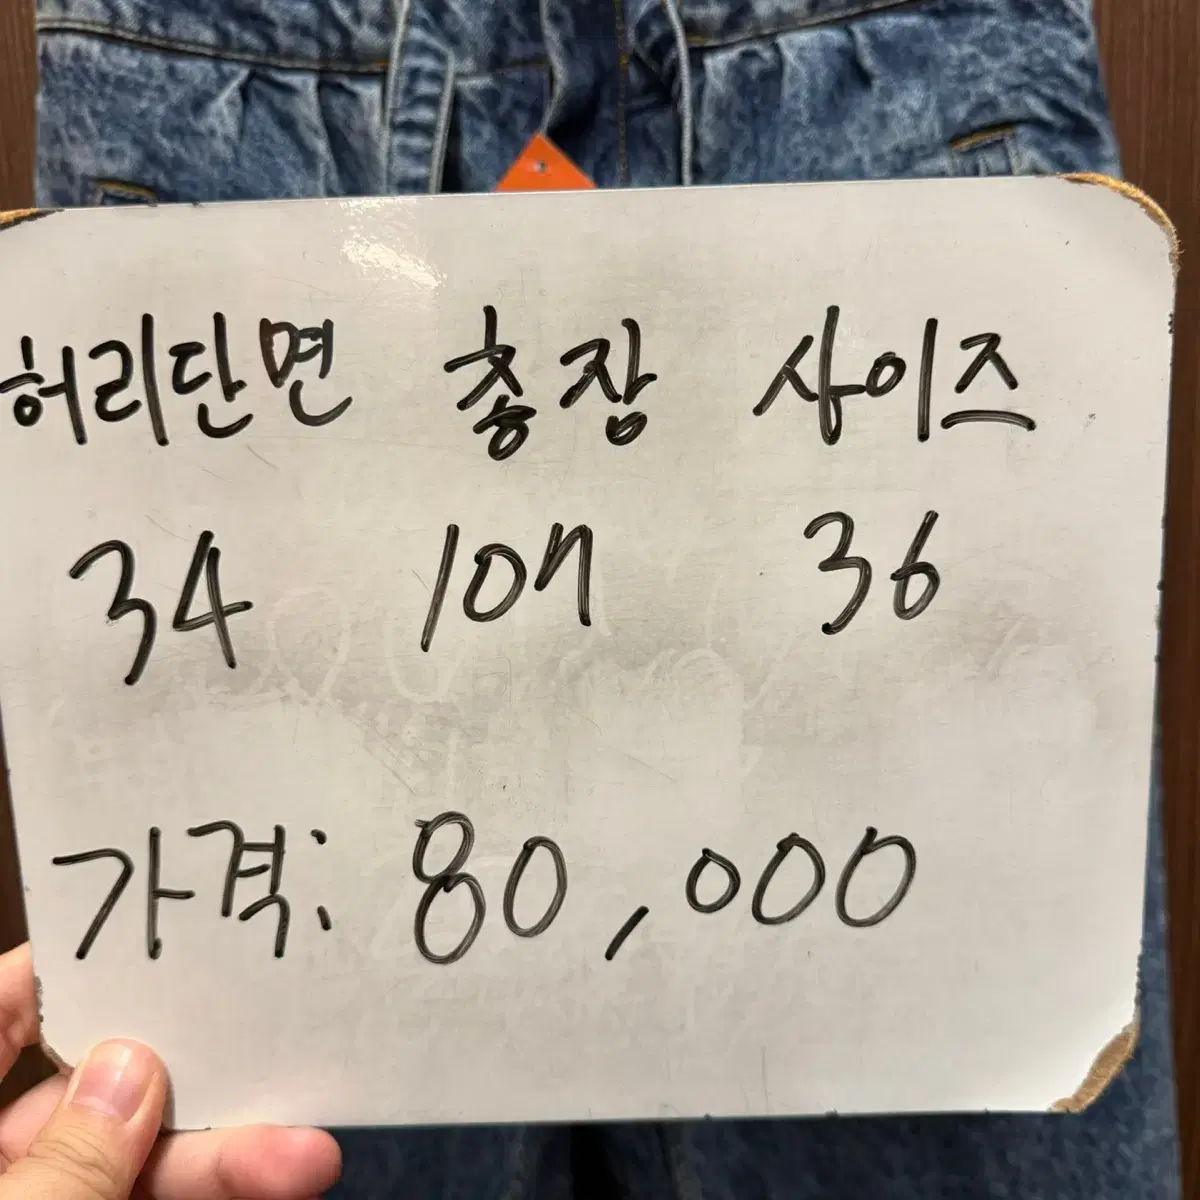 허리단면 총장 사이즈
34 107 36
가격: 80,000